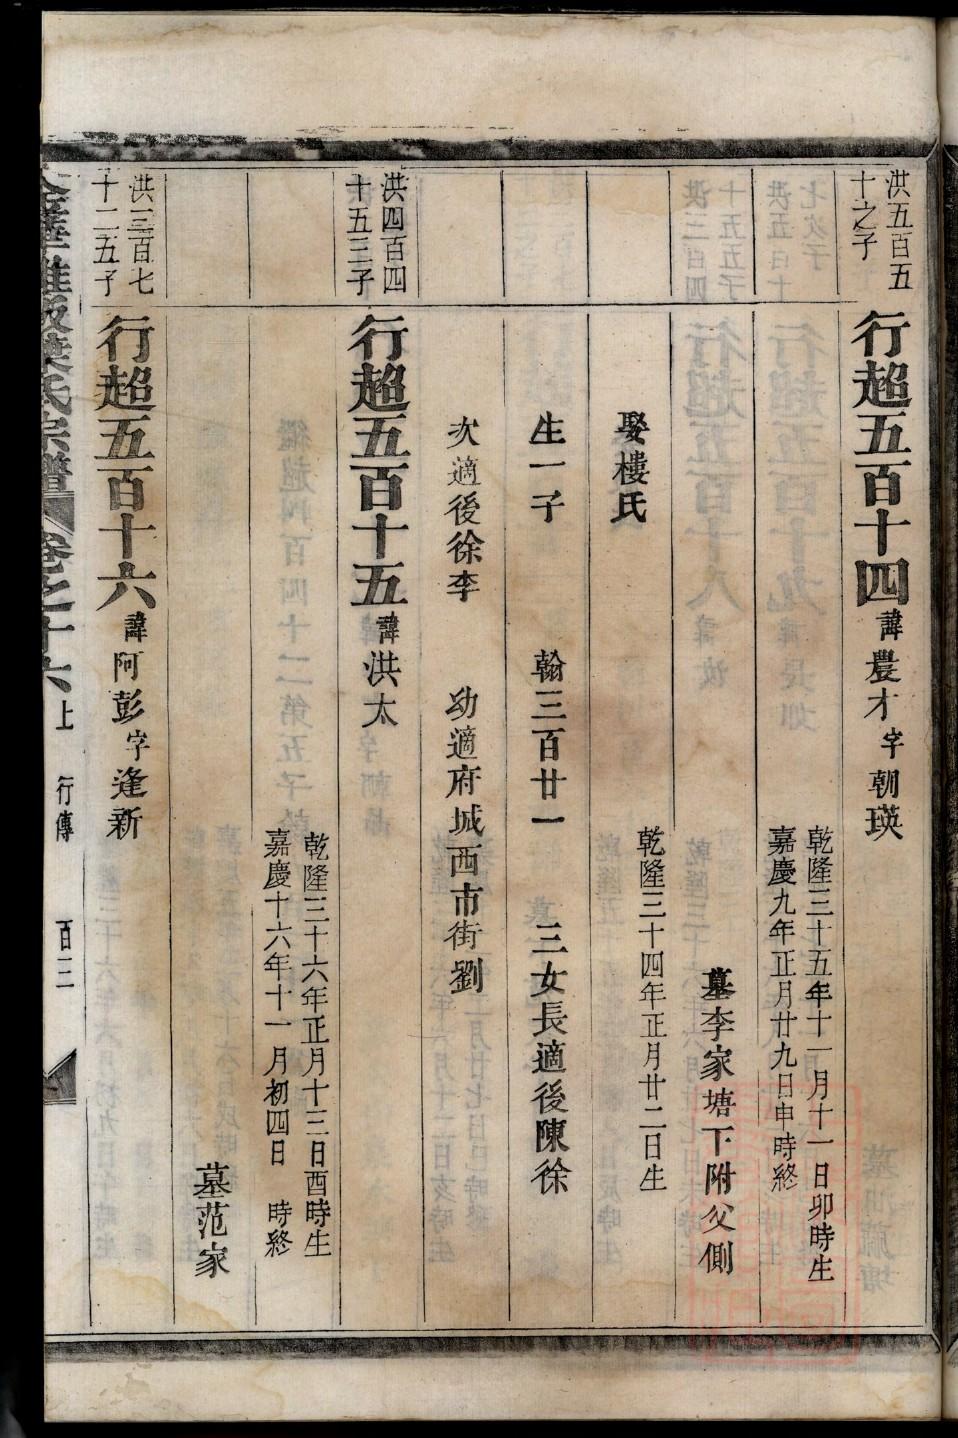 洪五百五
十之子
行超五百十四諱農才字朝瑛
乾隆三十五年十一月十一日卯時生
嘉慶九年正月廿九日申時終
墓李家塘下附父側
娶樓氏
乾隆三十四年正月廿二日生
生一子 翰三百廿一 三女長適後陳徐
次適後徐李 幼適府城西市街劉
洪四百四
十五三子
行超五百十五諱洪太
乾隆三十六年正月十三日酉時生
嘉慶十六年十一月初四日 時終
墓范家
洪三百七
十二五子
行超五百十六諱阿彭字逢新
氏宗譜 卷之十六上 行傳 百三